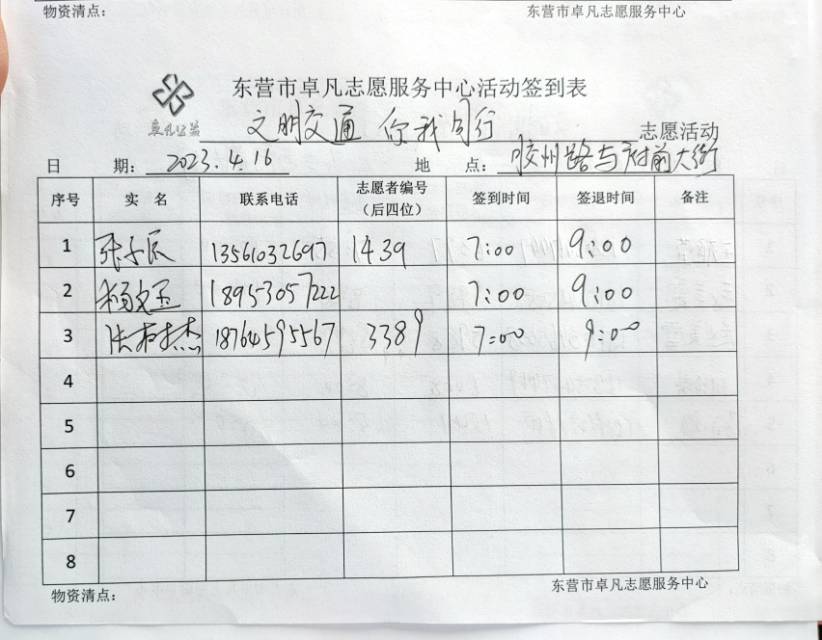 物资清点： 东营市卓凡志愿服务中心
东营市卓凡志愿服务中心活动签到表
卓凡公益 文明交通 你我同行 志愿活动
日 期： 2023.4.16 地 点： 胶州路与府前大街
序号 实 名 联系电话 志愿者编号（后四位） 签到时间 签退时间 备注
1 张子辰 13561032697 1439 7:00 9:00
2 杨文玉 18953057222 7:00 9:00
3 杰 18764595567 3389 7:00 9:00
4
5
6
7
8
物资清点： 东营市卓凡志愿服务中心